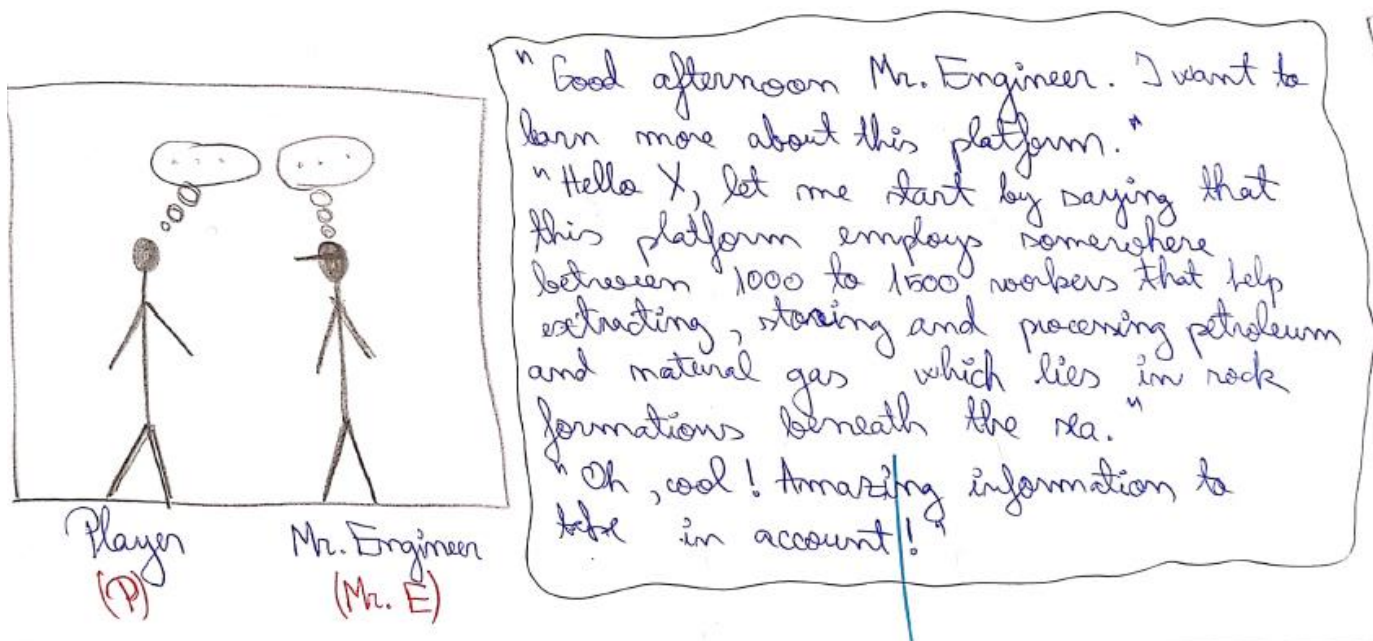 . . .
. . .
Player
(P)
Mr. Engineer
(Mr. E)
"Good afternoon Mr. Engineer. I want to
learn more about this platform."
"Hello X, let me start by saying that
this platform employs somewhere
between 1000 to 1500 workers that help
extracting, storing and processing petroleum
and natural gas which lies in rock
formations beneath the sea."
"Oh, cool! Amazing information to
take in account!"